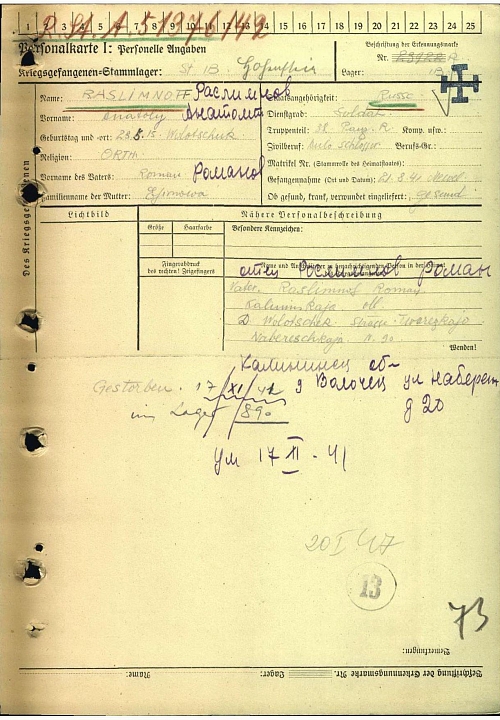 1 2 3 4 5 6 7 8 9 10 11 12 13 14 15 16 17 18 19 20 21 22 23 24 25
Personalkarte I: Personelle Angaben
Beschriftung der Erkennungsmarke
Nr.
Kriegsgefangenen-Stammlager: St IB Hohenstein
Lager: IB
Des Kriegsgefangenen
Name: RASLIMNOFF Раслимнов
Staatsangehörigkeit: Russe
Vorname: Anatoly Анатолий
Dienstgrad: Soldat
Geburtstag und -ort: 23.8.15 Wolotschek
Truppenteil: 38 Panz. R. Komp. usw.
Religion: ORTH
Zivilberuf: Auto Schlosser Berufs-Gr.:
Matrikel Nr. (Stammrolle des Heimatstaates):
Vorname des Vaters: Roman Романов
Gefangennahme (Ort und Datum): 21.8.41
Familienname der Mutter: Efimowa
Ob gesund, krank, verwundet eingeliefert: gesund
Lichtbild
Nähere Personalbeschreibung
Größe Haarfarbe
Besondere Kennzeichen:
Fingerabdruck
des rechten! Zeigefingers
Name und Anschrift der zu benachrichtigenden Person in der Heimat
отец Раслимнов Роман
Vater Raslimnof Roman
Kalininskaja obl.
D. Wolotschek
Nabereschkaja N. 20
Wenden!
Gestorben 17/XI/41
im Lager 890
об-
г Волочец ул Наберен
д 20
Ум 17 XI - 41
20 I 47
13
73
Bemerkungen:
Name: Lager: Beschriftung der Erkennungsmarke Nr.